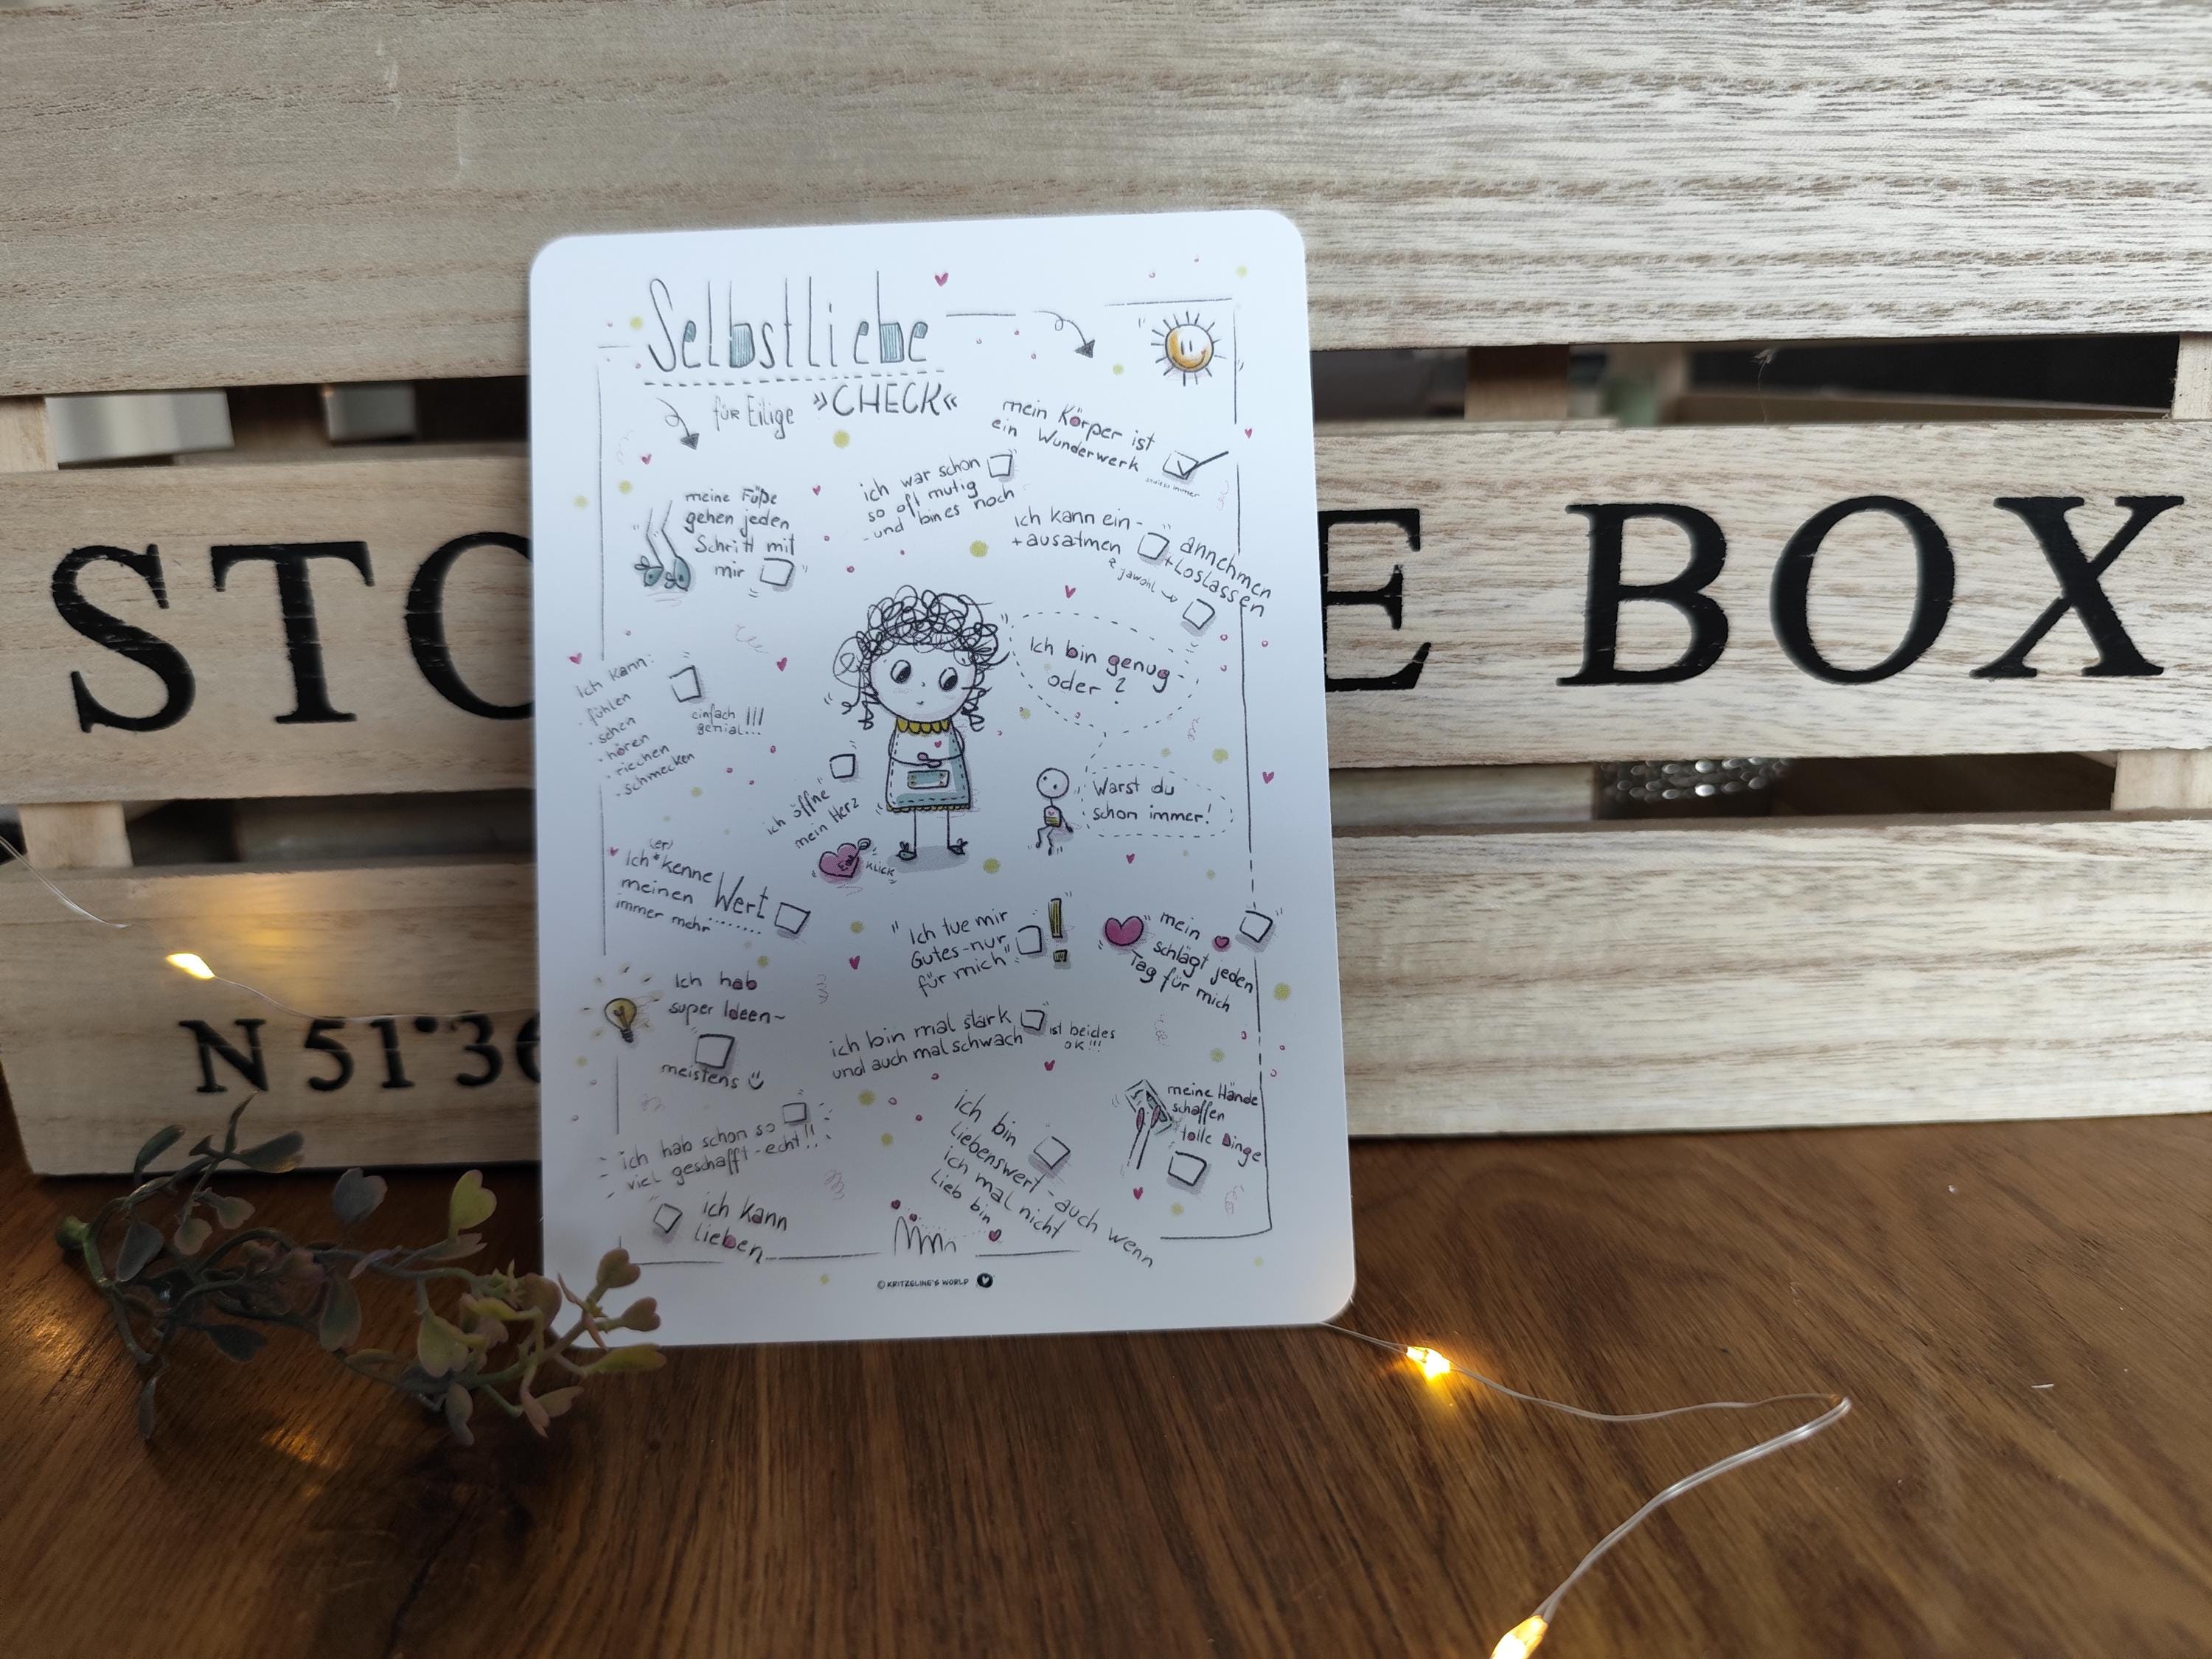 Selbstliebe
für Eilige »CHECK«
mein Körper ist
ein Wunderwerk
ich war schon
so oft mutig
- und bin es noch
meine Füße
gehen jeden
Schritt mit
mir
ich kann ein-
+ausatmen
annehmen
+Loslassen
jawohl
Ich bin genug -
oder ?
Warst du
schon immer!
ich kann:
· fühlen
· sehen
· hören
· riechen
· schmecken
einfach
genial!!!
ich öffne
mein Herz
Klick
(er)
Ich*kenne
meinen Wert
immer mehr........
"Ich tue mir
Gutes-nur
für mich"
!
mein
schlägt jeden
Tag für mich
Ich hab
super Ideen~
meistens
ich bin mal stark
und auch mal schwach
ist beides
OK!!!
ich hab schon so
viel geschafft-echt!!
ich bin
Liebenswert - auch wenn
ich mal nicht
Lieb bin
meine Hände
schaffen
tolle Dinge
ich kann
lieben
© KRITZELINE'S WORLD
STO
E BOX
N 51°36